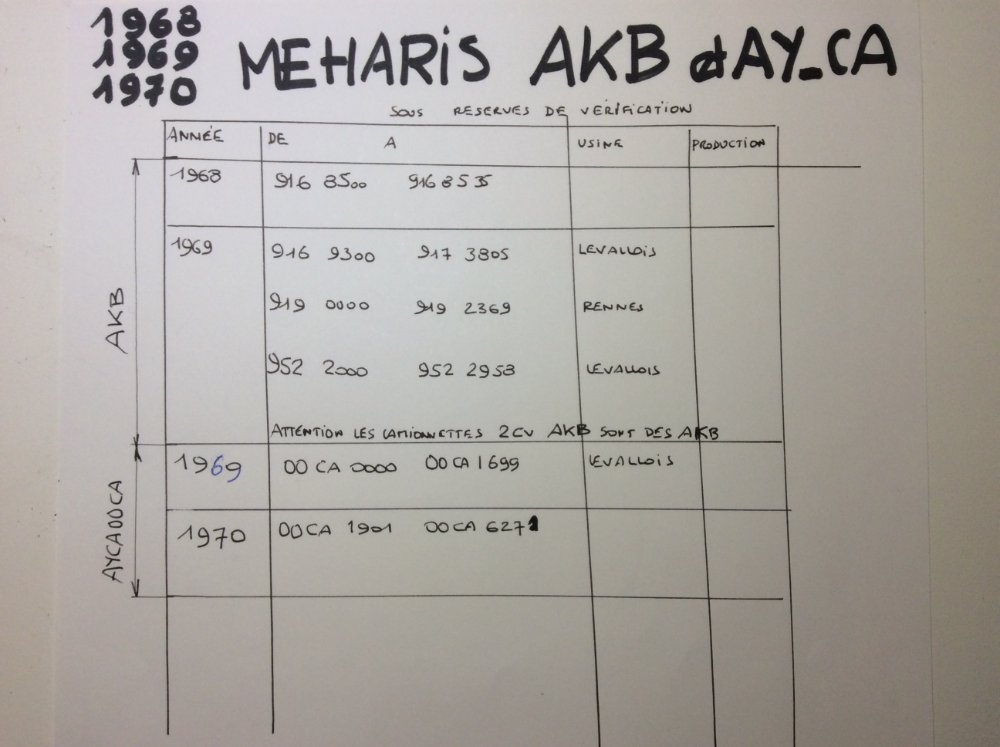 1968
1969
1970
MEHARiS AKB et AY_CA
SOUS RESERVES DE VERIFICATION
ANNÉE DE A USINE PRODUCTION
1968 916 8500 916 8535
1969 916 9300 917 3805 LEVALLOIS
919 0000 919 2369 RENNES
952 2000 952 2953 LEVALLOIS
ATTENTION LES CAMIONNETTES 2CV AKB SONT DES AKB
AKB
1969 00 CA 0000 00 CA 1699 LEVALLOIS
1970 00CA 1901 00CA 6271
AYCA00CA